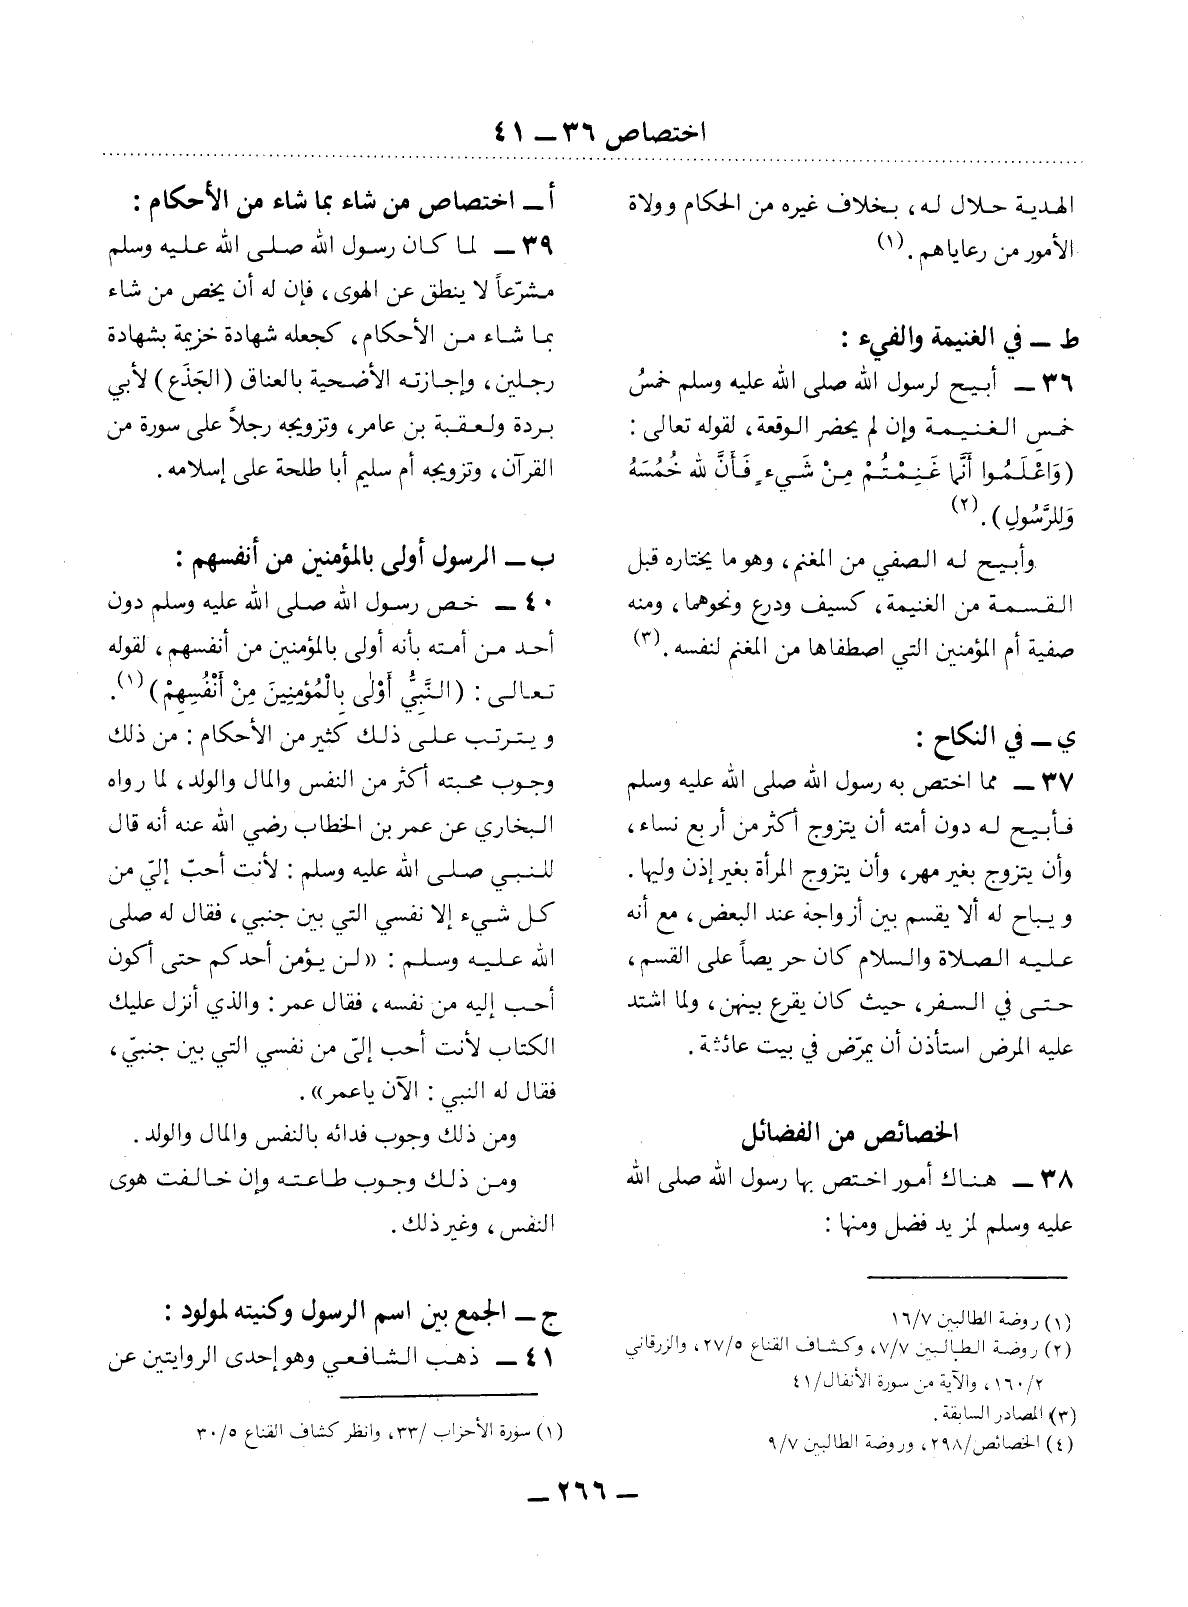 اختصاص ٣٦ ــ ٤١
الهدية حلال له، بخلاف غيره من الحكام وولاة
الأمور من رعاياهم. (١)
ط ــ في الغنيمة والفيء :
٣٦ ــ أبيح لرسول الله صلى الله عليه وسلم خمسُ
خمسِ الغنيمة وإن لم يحضر الوقعة، لقوله تعالى :
(وَاعْلَمُوا أَنَّمَا غَنِمْتُمْ مِنْ شَيءٍ فَأَنَّ لله خُمُسَهُ
وَلِلرَّسُولِ). (٢)
وأبيح له الصفي من المغنم، وهو ما يختاره قبل
القسمة من الغنيمة، كسيف ودرع ونحوهما، ومنه
صفية أم المؤمنين التي اصطفاها من المغنم لنفسه. (٣)
ي ــ في النكاح :
٣٧ ــ مما اختص به رسول الله صلى الله عليه وسلم
فأبيح له دون أمته أن يتزوج أكثر من أربع نساء،
وأن يتزوج بغير مهر، وأن يتزوج المرأة بغير إذن وليها.
ويباح له ألا يقسم بين أزواجه عند البعض، مع أنه
عليه الصلاة والسلام كان حريصاً على القسم،
حتى في السفر، حيث كان يقرع بينهن، ولما اشتد
عليه المرض استأذن أن يمرّض في بيت عائشة.
الخصائص من الفضائل
٣٨ ــ هناك أمور اختص بها رسول الله صلى الله
عليه وسلم لمزيد فضل ومنها :
(١) روضة الطالبين ١٦/٧
(٢) روضة الطالبين ٧/٧، وكشاف القناع ٢٧/٥، والزرقاني
١٦٠/٢، والآية من سورة الأنفال/٤١
(٣) المصادر السابقة.
(٤) الخصائص/٢٩٨، وروضة الطالبين ٩/٧
أ ــ اختصاص من شاء بما شاء من الأحكام :
٣٩ ــ لما كان رسول الله صلى الله عليه وسلم
مشرّعاً لا ينطق عن الهوى، فإن له أن يخص من شاء
بما شاء من الأحكام، كجعله شهادة خزيمة بشهادة
رجلين، وإجازته الأضحية بالعناق (الجَذَع) لأبي
بردة ولعقبة بن عامر، وتزويجه رجلاً على سورة من
القرآن، وتزويجه أم سليم أبا طلحة على إسلامه.
ب ــ الرسول أولى بالمؤمنين من أنفسهم :
٤٠ ــ خص رسول الله صلى الله عليه وسلم دون
أحد من أمته بأنه أولى بالمؤمنين من أنفسهم، لقوله
تعالى : (النَّبِيُّ أَوْلَى بِالْمُؤمِنِينَ مِنْ أَنْفُسِهِمْ) (١).
ويترتب على ذلك كثير من الأحكام : من ذلك
وجوب محبته أكثر من النفس والمال والولد، لما رواه
البخاري عن عمر بن الخطاب رضي الله عنه أنه قال
للنبي صلى الله عليه وسلم : لأنت أحبّ إليّ من
كل شيء إلا نفسي التي بين جنبي، فقال له صلى
الله عليه وسلم : «لن يؤمن أحدكم حتى أكون
أحب إليه من نفسه، فقال عمر : والذي أنزل عليك
الكتاب لأنت أحب إليّ من نفسي التي بين جنبيّ،
فقال له النبي : الآن ياعمر».
ومن ذلك وجوب فدائه بالنفس والمال والولد.
ومن ذلك وجوب طاعته وإن خالفت هوى
النفس، وغير ذلك.
ج ــ الجمع بين اسم الرسول وكنيته لمولود :
٤١ ــ ذهب الشافعي وهو إحدى الروايتين عن
(١) سورة الأحزاب /٣٣، وانظر كشاف القناع ٣٠/٥
ــ ٢٦٦ ــ